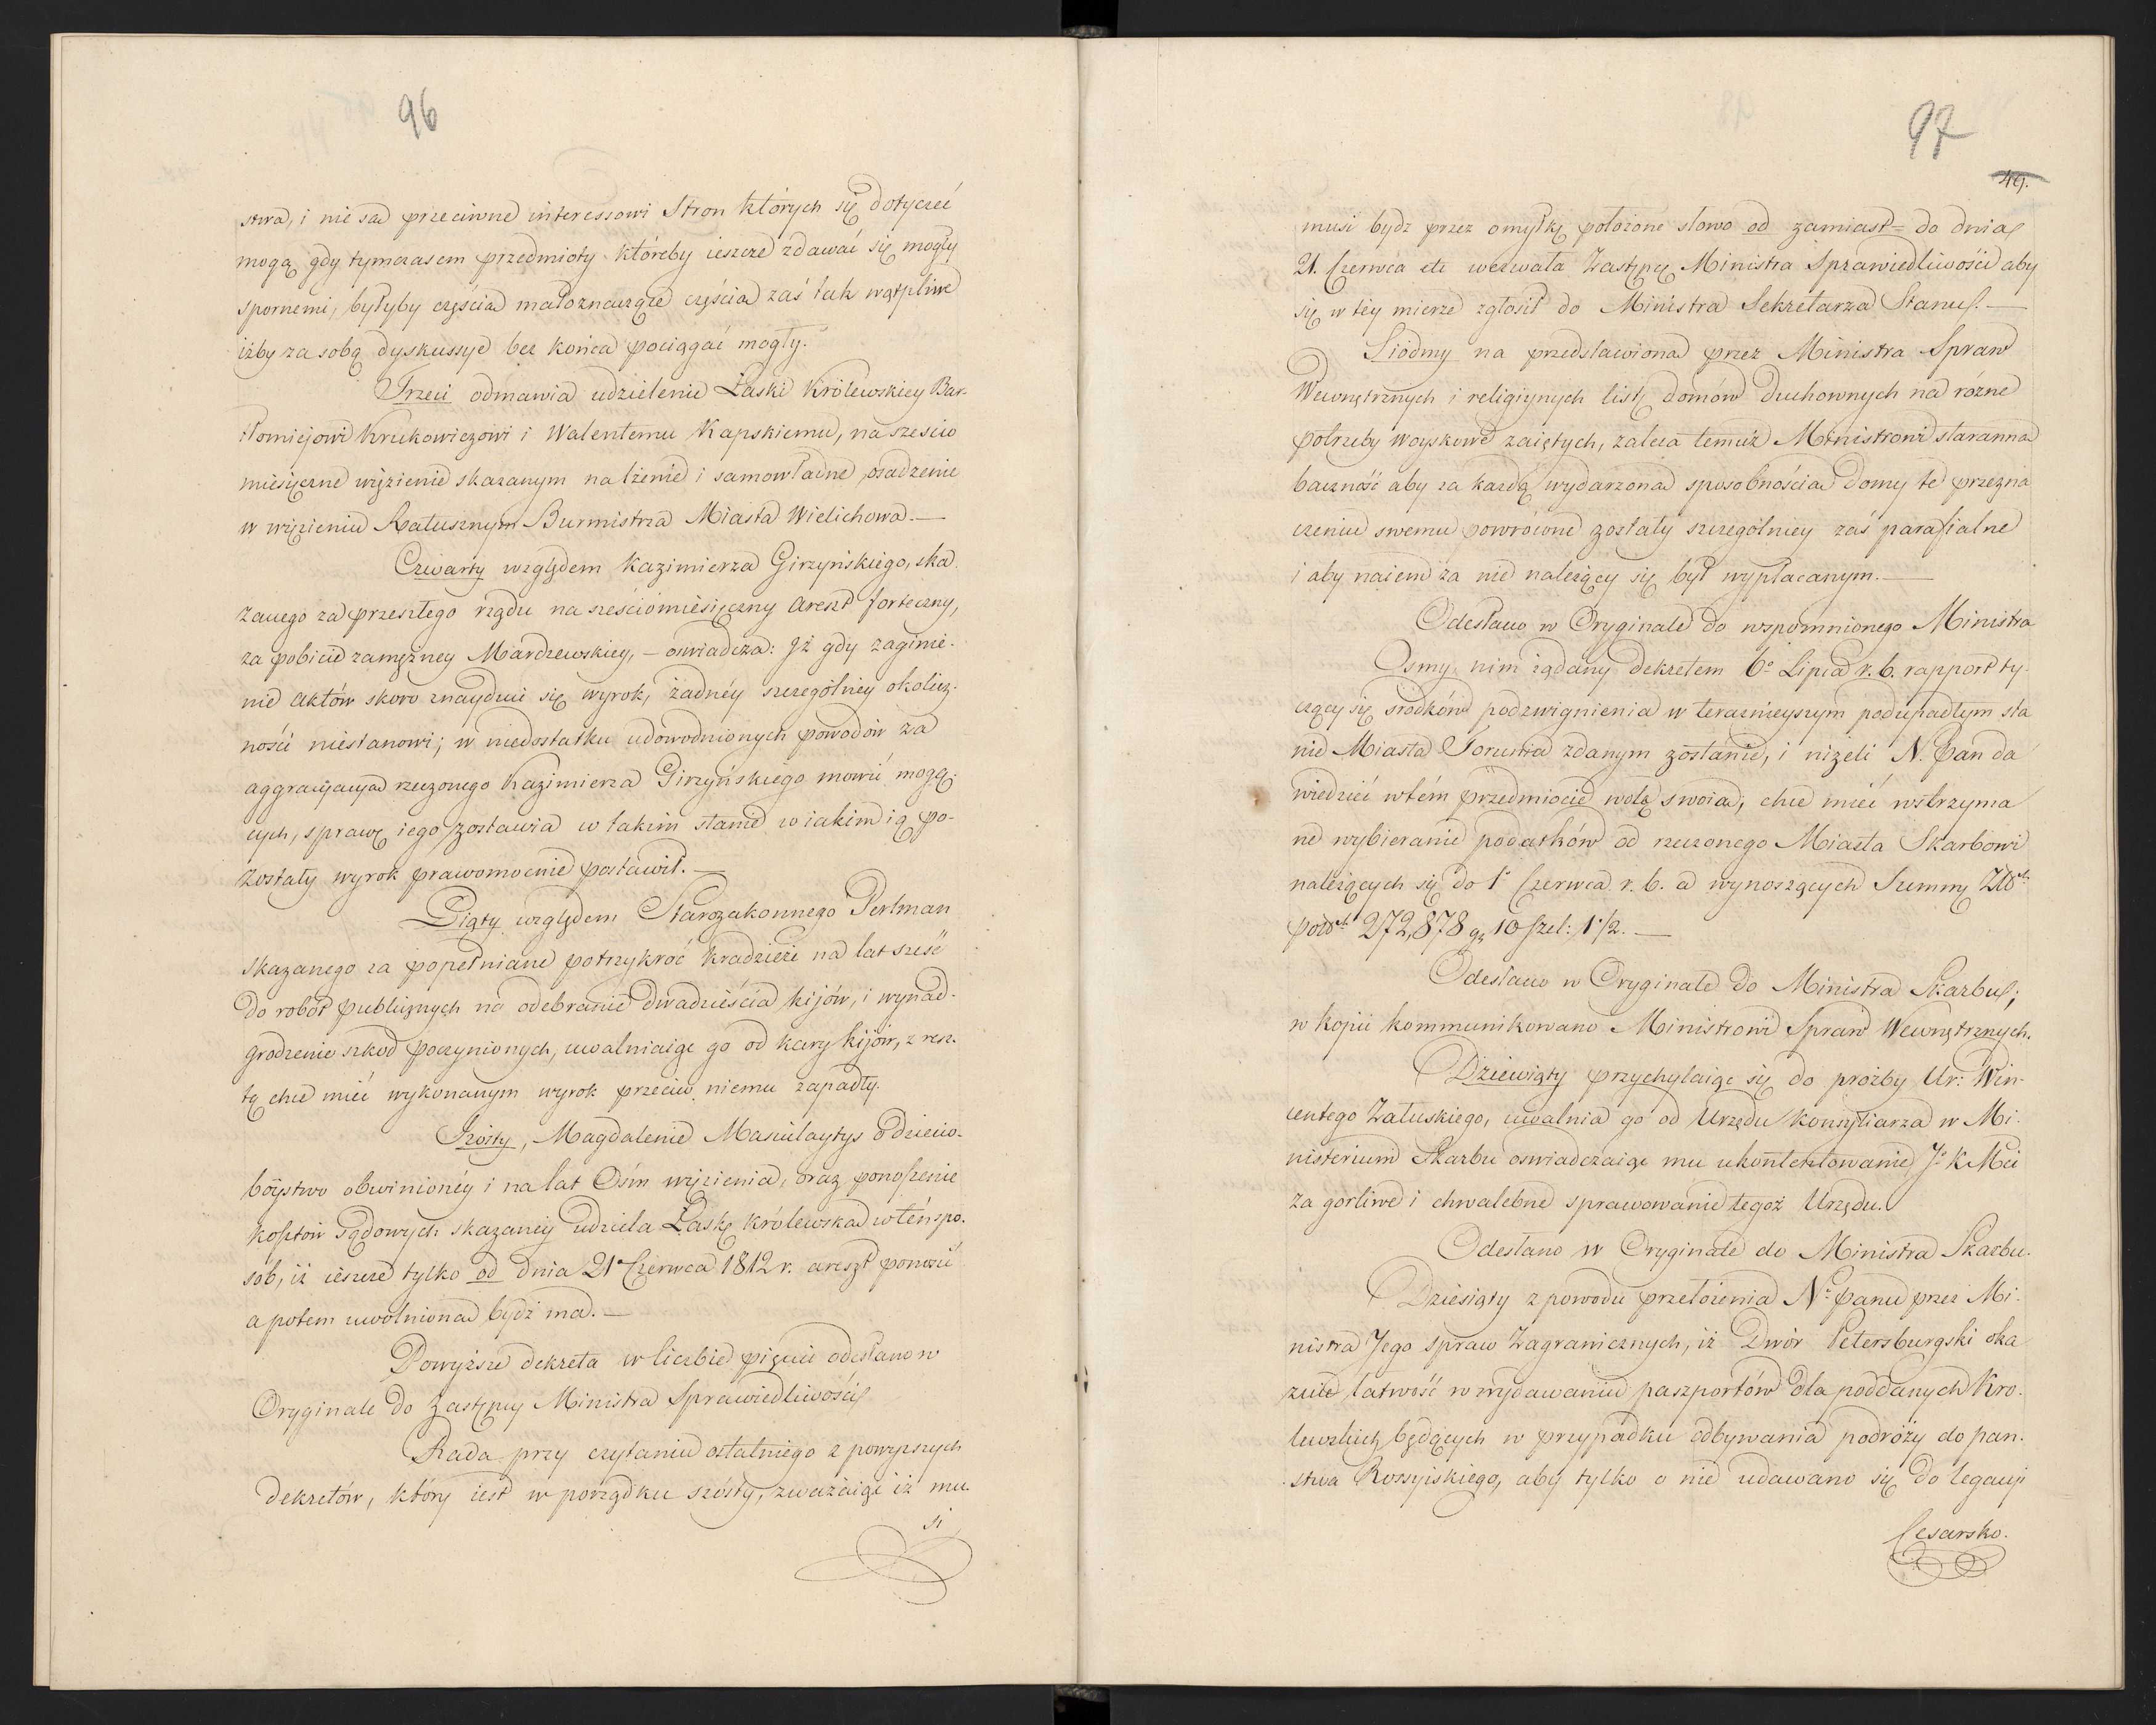 96
stwa, i nie są przeciwne interessowi Stron których się dotyczeć
mogą gdy tymczasem przedmioty któreby ieszcze zdawać się mogły
spornemi, byłyby częścią małoznaczące częścią zaś tak wątpliwe
iżby za sobą dyskussye bez końca pociągać mogły.
Trzeci odmawia udzielenie Łaski Królewskiey Bar-
tłomiejowi Krukowiczowi i Walentemu Kapskiemu, na sześcio
miesięczne więzienie skazanym na lżenie i samowładne osadzenie
w więzieniu Ratusznym Burmistrza Miasta Wielichowa. —
Czwarty względem Kazimierza Girzyńskiego, ska
zanego za przeszłego rządu na sześciomiesięczny areszt forteczny,
za pobicie zamężney Mardzewskiey, – oświadcza: Jż gdy zaginie-
nie aktów skoro znayduie się wyrok, żadnéy szczególniey okolicz-
ności niestanowi; w niedostatku udowodnionych powodów za
aggracyacyą rzeczonego Kazimierza Girzyńskiego mowić mogą-
cych, sprawę iego zostawia w takim stanie w iakim ią po-
zostały wyrok prawomocnie postawił. —
Piąty względem Starozakonnego Perlman
skazanego za popełniane potrzykroć kradzieże na lat sześć
do robót publicznych na odebranie dwadzieścia kijów, i wynad-
grodzenie szkod poczynionych, uwalniaiąc go od kary kijów, z resz-
tą chce mieć wykonanym wyrok przeciw niemu zapadły.
Szósty, Magdalenie Masculaytys o dziecio-
bóystwo obwinionéy i na lat Ośm więzienia, oraz ponoszenie
kosztów sądowych skazaney udziela Łaskę Królewską w tén spo-
sob, iż ieszcze tylko od dnia 21º Czerwca 1812 r. areszt ponosić
a potem uwolnioną bydź ma. —
Powyższe dekreta w liczbie pięciu odesłano w
Oryginale do Zastępcy Ministra Sprawiedliwości
Rada przy czytaniu ostatniego z powyższych
dekretów, który iest w porządku szósty, zważaiąc iż mu-
si
97
49.
musi bydź przez omyłkę położone słowo od zamiast = do dnia
21. Czerwca etc wezwała Zastępcę Ministra Sprawiedliwości aby
się w tey mierze zgłosił do Ministra Sekretarza Stanu. —
Siódmy na przedstawioną przez Ministra Spraw
Wewnętrznych i religiynych listę domów Duchownych na różne
potrzeby woyskowe zaiętych, zaleca temuż Ministrowi staranną
baczność aby za każdą wydarzoną sposobnością Domy te przezna
czeniu swemu powrócone zostały szczególniey zaś parafialne
i aby naiem za nie należący się był wypłacanym. —
Odesłano w Oryginale do wspomnionego Ministra
Osmy, nim żądany dekretem 6º Lipca r. b. rapport ty-
czący się środków podzwignienia w teraznieyszym podupadłym sta
nie Miasta Torunia zdanym zostanie, i niżeli N. Pan da
wiedzieć w tém przedmiocie wolę swoią, chce mieć wstrzyma
ne wybieranie podatków od rzeczonego Miasta Skarbowi
należących się do 1º Czerwca r. b. a wynoszących Summę Złot:
pols: 272,878 gr 10 szel: 1 1/2. —
Odesłano w Oryginale do Ministra Skarbu;
w kopii kommunikowano Ministrowi Spraw Wewnętrznych.
Dziewiąty przychylaiąc się do proźby Ur: Win-
centego Załuskiego, uwalnia go od Urzędu Konsyliarza w Mi-
nisterium Skarbu oswiadczaiąc mu ukontentowanie Jº K Mci
za gorliwe i chwalebne sprawowanie tegoż Urzędu.
Odesłano w Oryginale do Ministra Skarbu.
Dziesiąty z powodu przełożenia Nº Panu przez Mi-
nistra Jego spraw Zagranicznych, iż Dwór Petersburgski oka
zuie łatwość w wydawaniu paszportów dla poddanych Kro-
lewskich będących w przypadku odbywania podróży do pan-
stwa Rossyiskiego, aby tylko o nie udawano się do legacyi
Cesarsko.